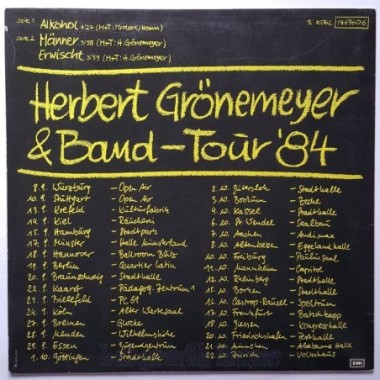 SEITE 1 Alkohol 4'27 (M+T: Kroters/Hamm)
SEITE 2 Männer 3'58 (M+T: H. Grönemeyer)
Erwischt 3'59 (M+T: H. Grönemeyer)
1C K062
1469606
Herbert Grönemeyer
& Band-Tour '84
8.9. Würzburg - Open Air
10.9. Stuttgart - Open Air
13.9. Krefeld - Kulturfabrik
14.9. Kiel - Räucherei
15.9. Hamburg - Stadtpark
17.9. Münster - Halle Münsterland
18.9. Hannover - Ballroom Blitz
19.9. Berlin - Quartier Latin
20.9. Braunschweig - Stadthalle
22.9. Kaarst - Pädagog. Zentrum
23.9. Bielefeld - PC 69
24.9. Köln - Alter Wartesaal
27.9. Bremen - Glocke
28.9. Minden - Wilhelmshöhe
29.9. Essen - Jugendzentrum
1.10. Göttingen - Stadthalle
2.10. Gütersloh - Stadthalle
3.10. Bochum - Zeche
4.10. Kassel - Stadthalle
6.10. St. Wendel - Saalbau
7.10. Aachen - Audimax
8.10. Altenbeken - Eggelandhalle
10.10. Freiburg - Paulussaal
11.10. Mannheim - Capitol
12.10. Rheinberg - Stadthalle
14.10. Borken - Stadthalle
16.10. Castrop-Rauxel - Stadthalle
17.10. Frankfurt - Batschkapp
18.10. Giessen - Kongresshalle
20.10. Friedrichshafen - Festhalle
21.10. München - Alabama Halle
22.10. Zürich - Volkshaus
EMI